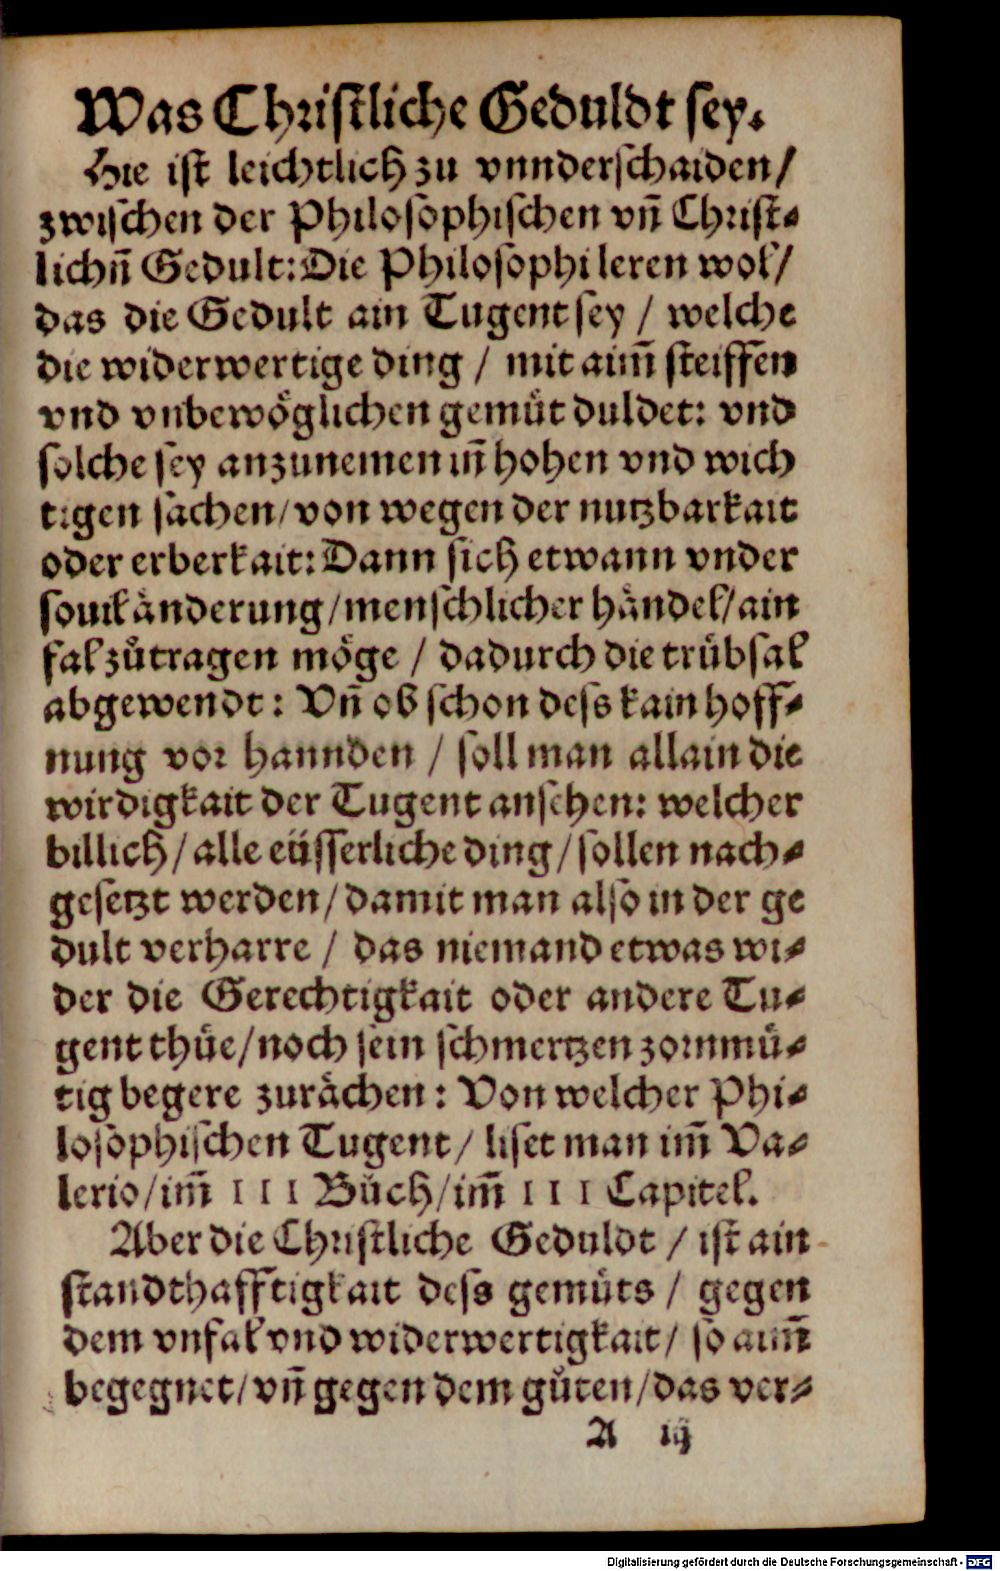 Was Chriſtliche Geduldt ſey.
Hie iſt leichtlich zu vnnderſchaiden/
zwiſchen der Philoſophiſchen vñ Chriſt⸗
lichñ Gedult: Die Philoſophi leren wol/
das die Gedult ain Tugent ſey / welche
die widerwertige ding / mit aim̃ ſteiffen
vnd vnbewöglichen gemüt duldet: vnd
ſolche ſey anzunemen iñ hohen vnd wich
tigen ſachen/ von wegen der nutzbarkait
oder erberkait: Dann ſich etwann vnder
ſouil änderung/ menſchlicher händel/ ain
fal zůtragen möge / dadurch die trübſal
abgewendt: Vñ ob ſchon deſs kain hoff⸗
nung vor hannden / ſoll man allain die
wirdigkait der Tugent anſehen: welcher
billich/ alle eüſſerliche ding/ ſollen nach⸗
geſetzt werden/ damit man alſo in der ge
dult verharre / das niemand etwas wi⸗
der die Gerechtigkait oder andere Tu⸗
gent thüe/ noch ſein ſchmertzen zornmü⸗
tig begere zurächen: Von welcher Phi⸗
loſophiſchen Tugent/ liſet man im̃ Va⸗
lerio/ im̃ III Bůch/ im̃ III Capitel.
Aber die Chriſtliche Geduldt / iſt ain
ſtandthafftigkait deſs gemüts / gegen
dem vnfal vnd widerwertigkait/ ſo aim̃
begegnet/ vñ gegen dem gůten/ das ver⸗
A iij
Digitalisierung gefördert durch die Deutsche Forschungsgemeinschaft - DFG